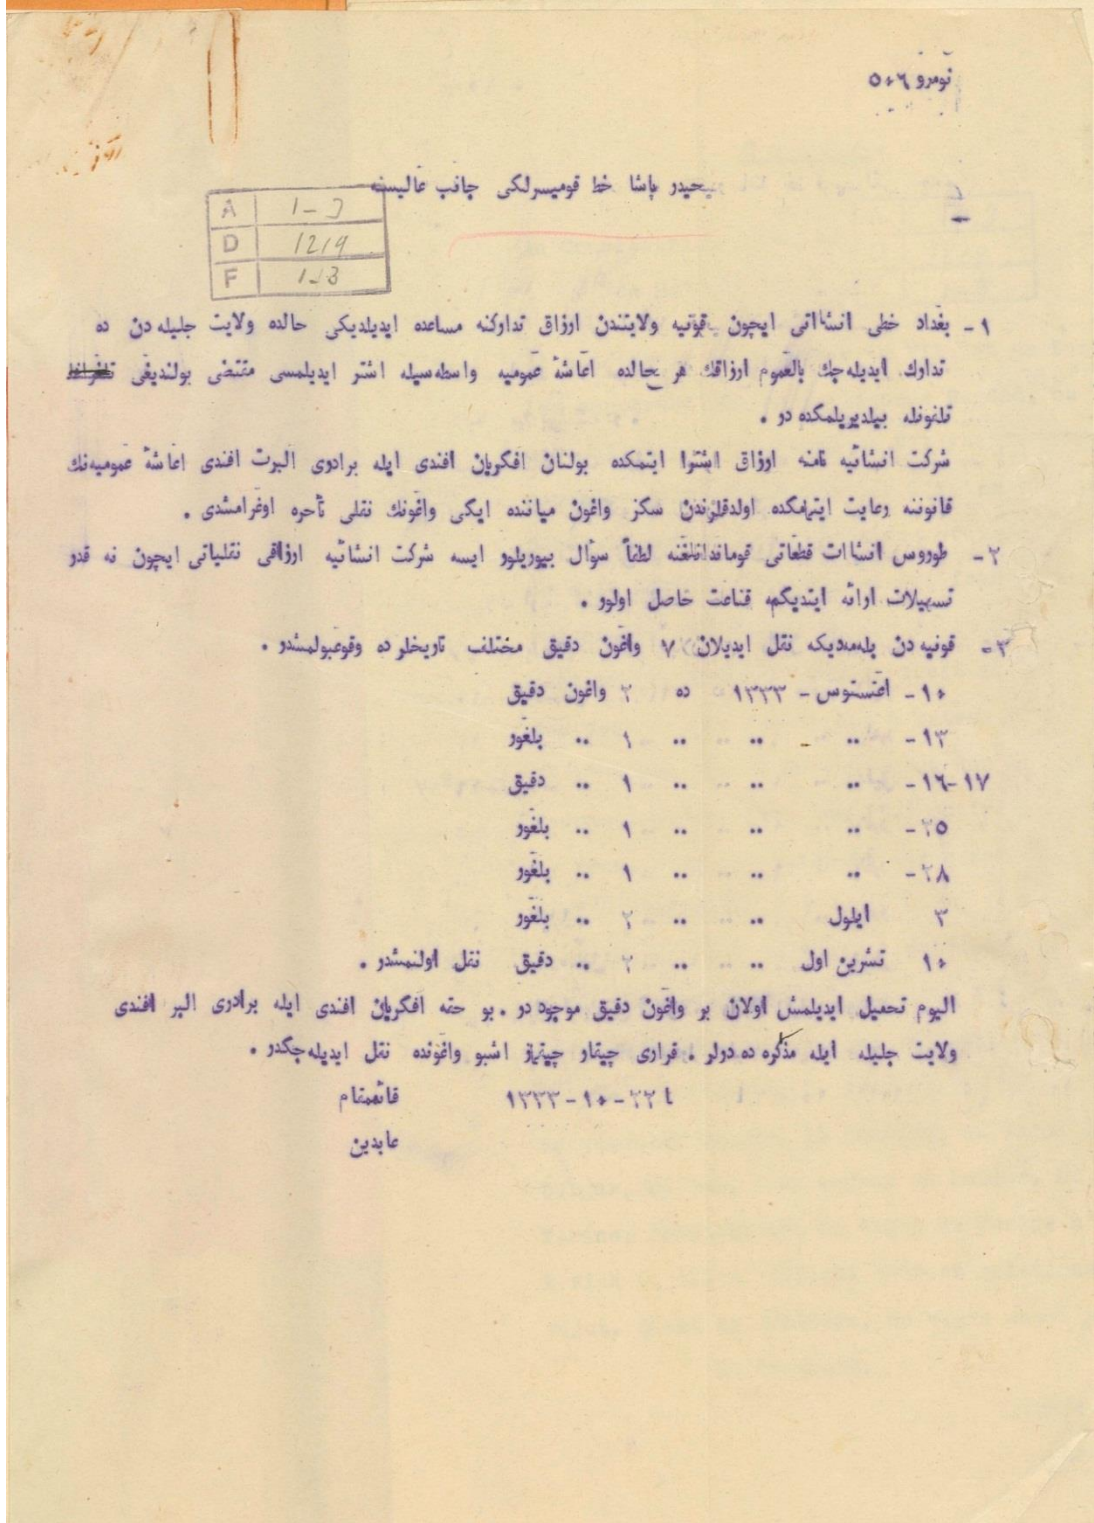 نومرو ٥٠٦
حیدر پاشا خط قومیسرلکی جانب عالیسنه
A ١-
D 1219
F
١- بغداد خطی انشاآتی ایچون قونیه ولایتندن ارزاق تدارکنه مساعده ایدیلدیکی حالده ولایت جلیله دن ده
تدارك ایدیله جك بالعموم ارزاقك هر حالده اعاشهٔ عمومیه واسطه سیله اشتر ایدیلمسی مقتضی بولندیغی
تلفونله بیلدیریلمکده در .
شرکت انشائیه نامنه ارزاق اشترا ایتمکده بولنان افکریان افندی ایله برادری البرت افندی اعاشهٔ عمومیه نك
قانوننه رعایت ایتمامکده اولدقلرندن سکز واغون میاننده ایکی واغونك نقلی تأخره اوغرامشدی .
٢- طوروس انشاآت قطعاتی قوماندانلغنه لطفاً سؤال بیوریلور ایسه شرکت انشائیه ارزاقی نقلیاتی ایچون نه قدر
تسهیلات ارائه ایتدیگمه قناعت حاصل اولور .
٣- قونیه دن بلمه دیکه نقل ایدیلان ٧ واغون دقیق مختلف تاریخلر ده وقوعبولمشدر .
١٠- اغستوس - ١٣٣٣ ده ٢ واغون دقیق
١٣- ٠٠ - ٠٠ ٠٠ ١ ٠٠ بلغور
١٦-١٧- ٠٠ ٠٠ ٠٠ ١ ٠٠ دقیق
٢٥- ٠٠ ٠٠ ٠٠ ١ ٠٠ بلغور
٢٨- ٠٠ ٠٠ ٠٠ ١ ٠٠ بلغور
٣ ایلول ٠٠ ٠٠ ٢ ٠٠ بلغور
١٠ تشرین اول ٠٠ ٠٠ ٢ ٠٠ دقیق نقل اولنمشدر .
الیوم تحمیل ایدیلمش اولان بر واغون دقیق موجود در . بو حقه افکریان افندی ایله برادری البر افندی
ولایت جلیله ایله مذکره ده درلر . قراری چیقار چیقماز اشبو واغونده نقل ایدیله جگدر .
٢٢-١٠-١٣٣٣ قائممقام
عابدین